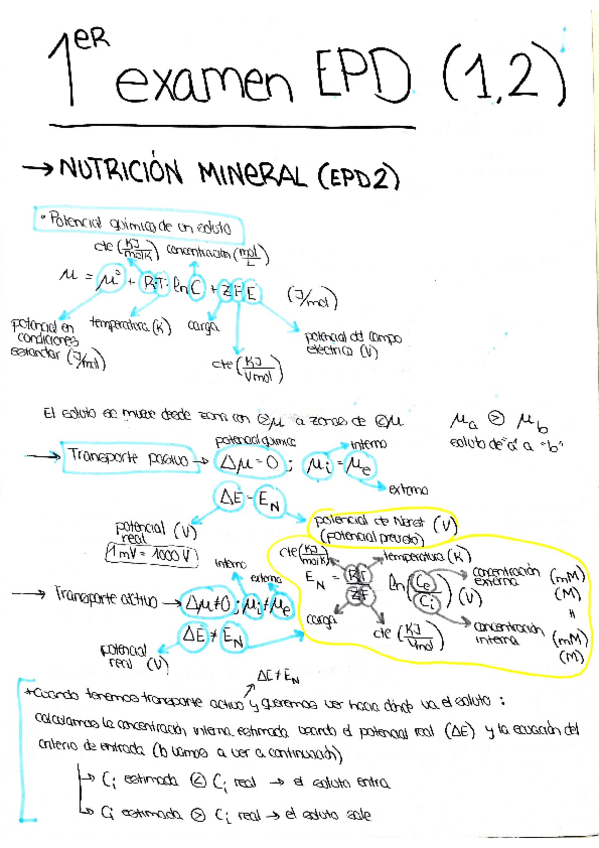 1ER examen EPD (1,2)
→ NUTRICIÓN MINERAL (EPD2)
• Potencial químico de un soluto
cte (KJ/molK) concentración (mol/L)
μ = μ° + R·T· ln C + Z F E (J/mol)
potencial en condiciones estandar (J/mol)
temperatura (K)
carga
cte (KJ/Vmol)
potencial del campo eléctrico (V)
El soluto se mueve desde zona con >μ a zonas de <μ
μa > μb
soluto de "a" a "b"
potencial químico
interno
→ Transporte pasivo → Δμ = 0 ; μi = μe
externo
ΔE = EN
potencial real (V)
1mV = 1000 V
potencial de Nernst (V)
(potencial previsto)
cte (KJ/molK)
temperatura (K)
EN = RT/ZF ln (Ce/Ci) (V)
concentración externa (mM) (M)
carga
cte (KJ/Vmol)
concentración interna (mM) (M)
interno
externo
→ Transporte activo → Δμ ≠ 0 ; μi ≠ μe
ΔE ≠ EN
potencial real (V)
ΔE ≠ EN
*Cuando tenemos transporte activo y queremos ver hacia dónde va el soluto :
calculamos la concentración interna estimada usando el potencial real (ΔE) y la ecuación del
criterio de entrada (lo vamos a ver a continuación)
→ Ci estimada < Ci real → el soluto entra
→ Ci estimada > Ci real → el soluto sale